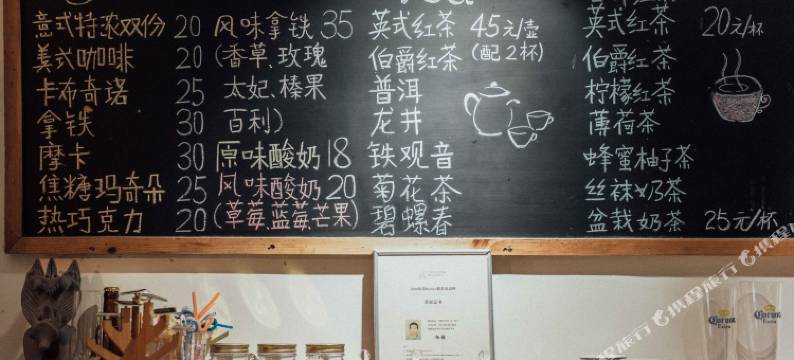 意式特浓双份 20
美式咖啡 20
卡布奇诺 25
拿铁 30
摩卡 30
焦糖玛奇朵 25
热巧克力 20
风味拿铁 35
(香草、玫瑰
太妃、榛果
百利)
原味酸奶 18
风味酸奶 20
(草莓、蓝莓、芒果)
英式红茶 45元/壶
伯爵红茶 (配2杯)
普洱
龙井
铁观音
菊花茶
碧螺春
英式红茶 20元/杯
伯爵红茶
柠檬红茶
薄荷茶
蜂蜜柚子茶
丝袜奶茶
盆栽奶茶 25元/杯
携程旅行
携程旅行
携程
Corona
Extra
Corona
Extra